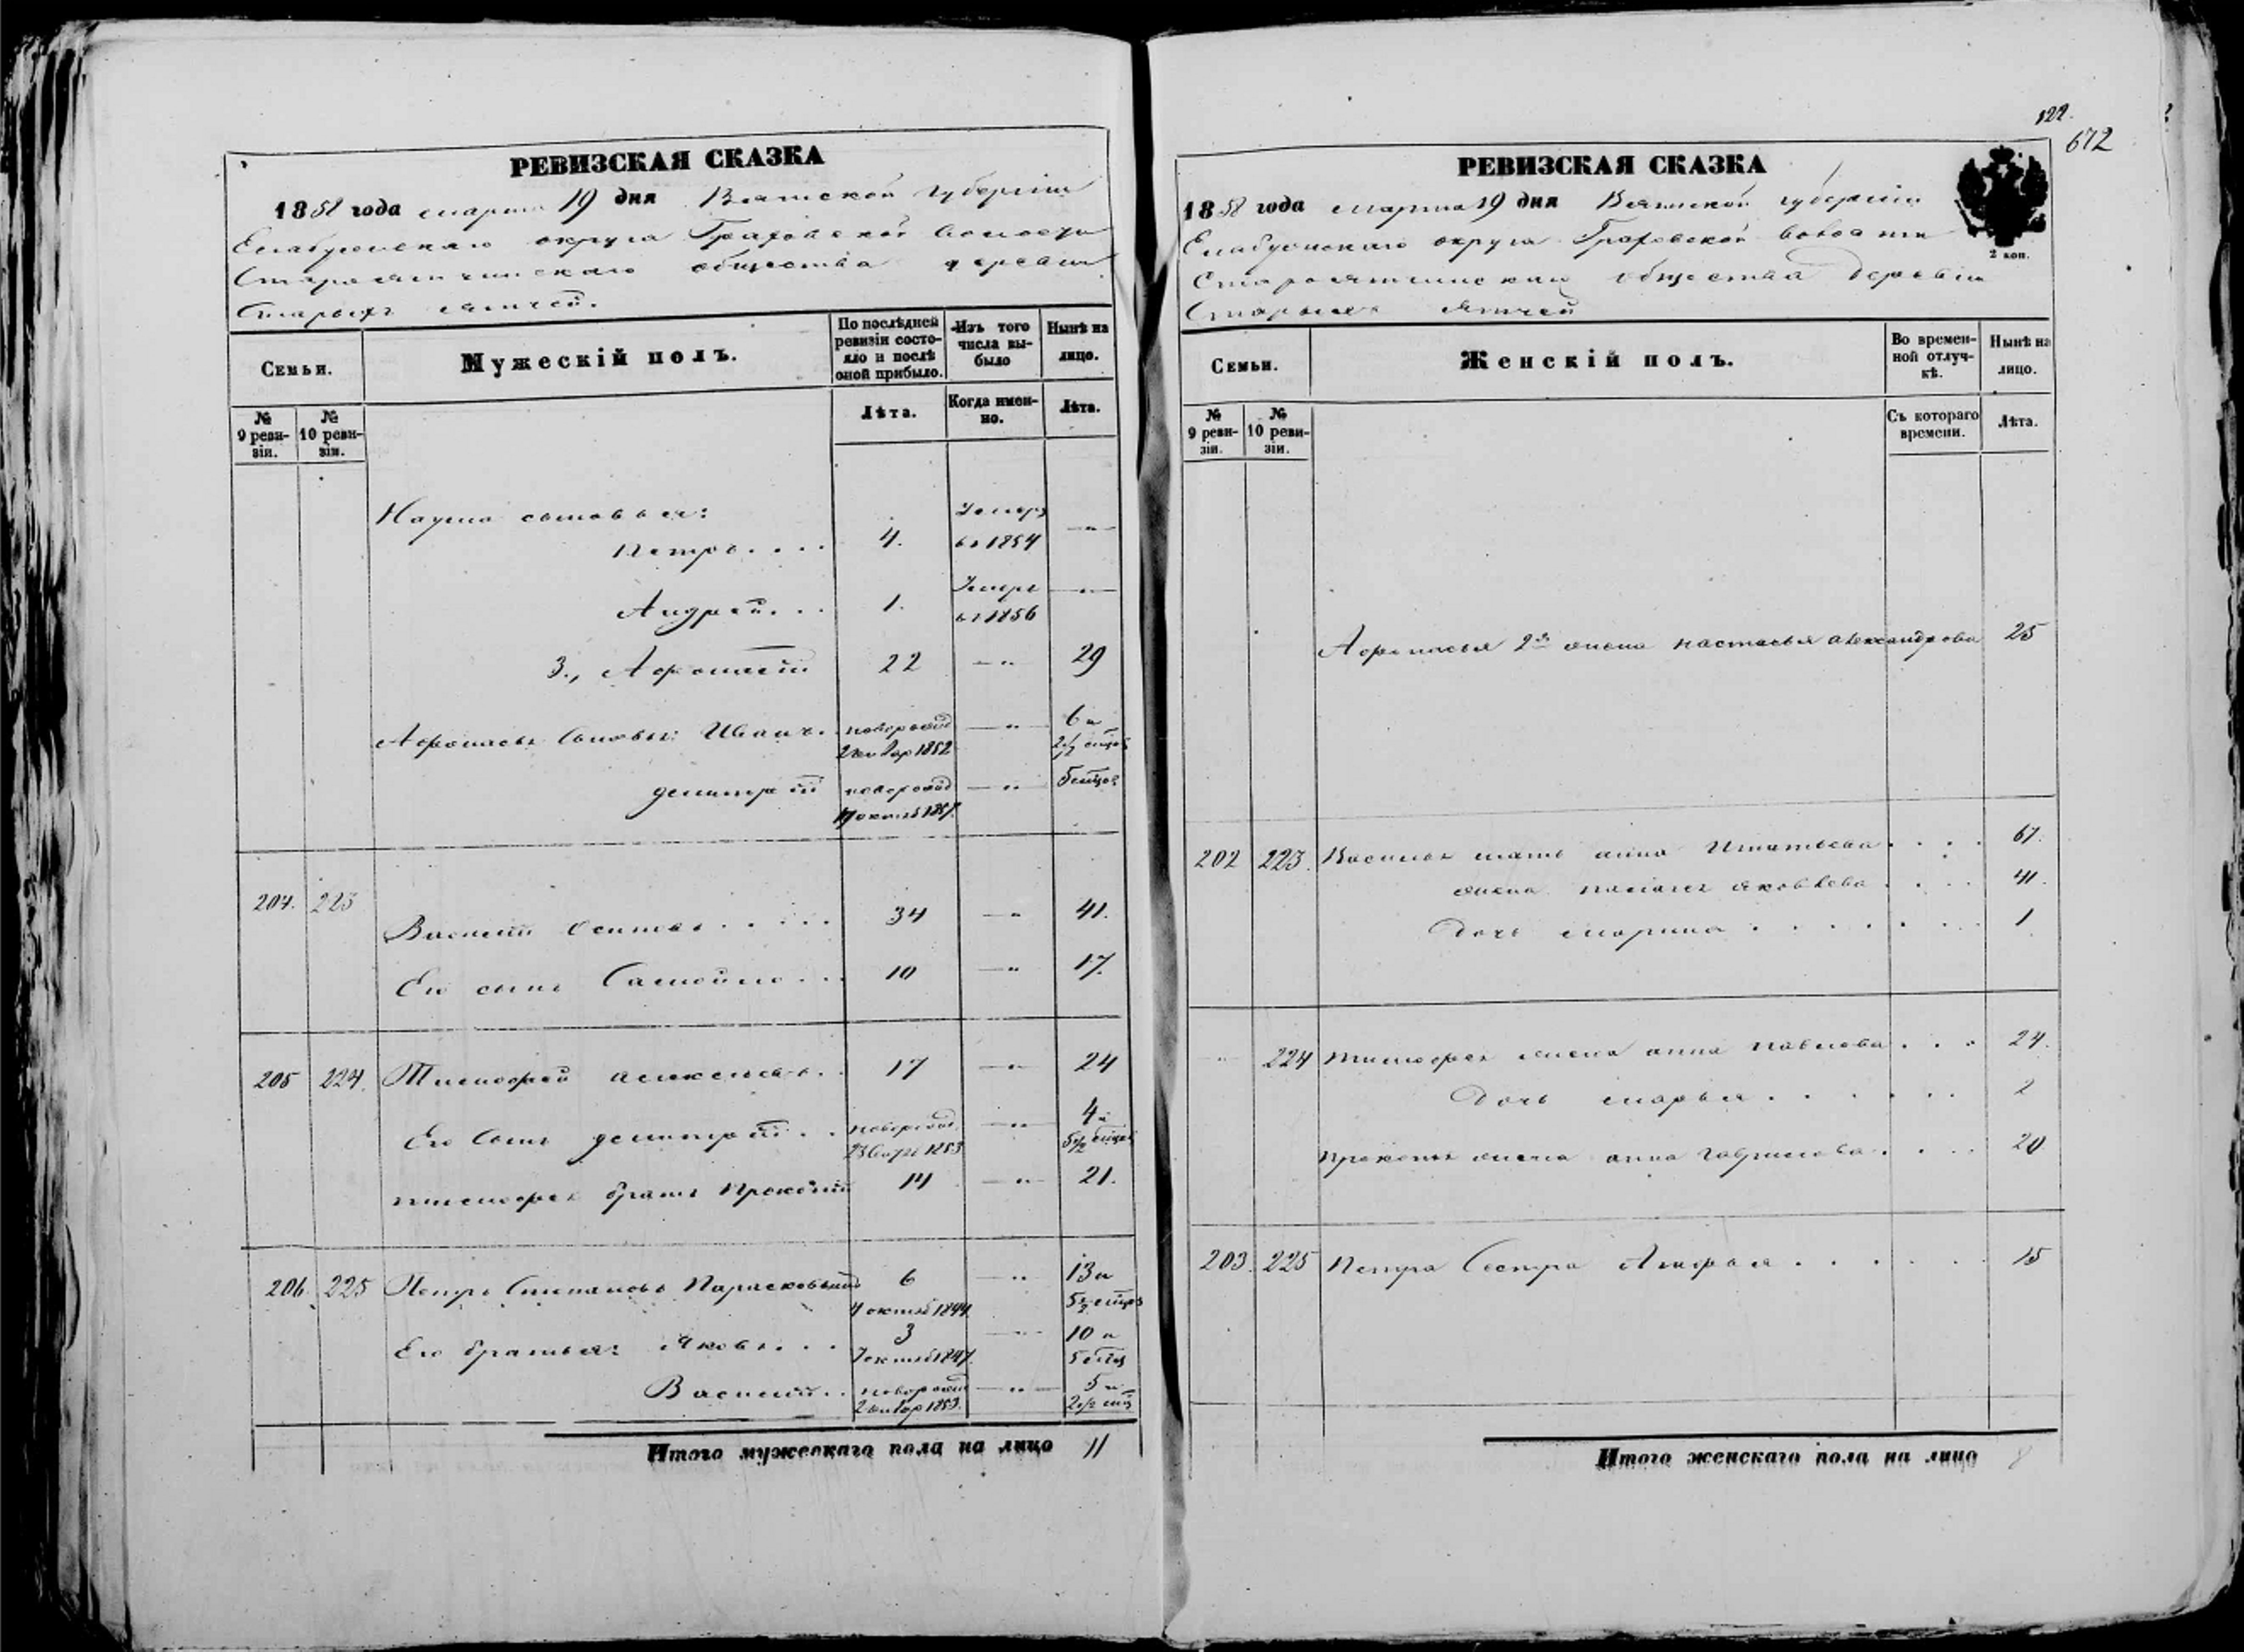 РЕВИЗСКАЯ СКАЗКА
1858 года марта 19 дня Вятской губернии
Елабужскаго округа Граховской волости
Староятчинскаго общества деревни
Старыхъ Ятчей.
Семьи.
Мужескій полъ.
По послѣдней ревизіи состояло и послѣ оной прибыло.
Изъ того числа выбыло
Нынѣ на лицо.
№ 9 ревизіи.
№ 10 ревизіи.
Лѣта.
Когда именно.
Лѣта.
Наума сыновья:
Петръ.... 4. Умеръ въ 1854 —"—
Андрей... 1. Умеръ въ 1856 —"—
3., Афонасій 22 —"— 29
Афонасья сыновья: Иванъ. новорожд 2 январ 1852 —"— 6 и 2 1/2 мѣцов
Дмитрій новорожд 17 октяб 1857. —"— 5 мѣцов
204. 223 Василій Осиповъ..... 34 —"— 41.
Его сынъ Самойло... 10 —"— 17.
205 224. Тимофей Алексѣевъ.. 17 —"— 24
Его сынъ Дмитрій.. новорожд. 1853 —"— 4 и 5 1/2 мѣцов
Тимофея братъ Прокопій 14 —"— 21.
206. 225 Петръ Степановъ 6 4 октяб 1844. —"— 13 и 5 1/2 мѣцов
Его братья: Яковъ... 3 7 октяб 1847. —"— 10 и 5 мѣц
Василій.. новорожд 2 январ 1853. —"— 5 и 2 1/2 мѣц
Итого мужескаго пола на лицо 11
122.
672
РЕВИЗСКАЯ СКАЗКА
2 коп.
1858 года марта 19 дня Вятской губернии
Елабужскаго округа Граховской волости
Староятчинскаго общества деревни
Старыхъ Ятчей
Семьи.
Женскій полъ.
Во временной отлучкѣ.
Нынѣ на лицо.
№ 9 ревизіи.
№ 10 ревизіи.
Съ котораго времени.
Лѣта.
Афонасья 2я жена Настасья Александрова 25
202 223. Василья мать Анна Игнатьева.... 67.
жена Яковлева.... 41.
Дочь Марина....... 1.
" 224 Тимофея жена Анна Павлова... 24.
Дочь Марья...... 2
Прокопья жена Анна Гаврилова.... 20
203. 225 Петра сестра...... 15
Итого женскаго пола на лицо 8